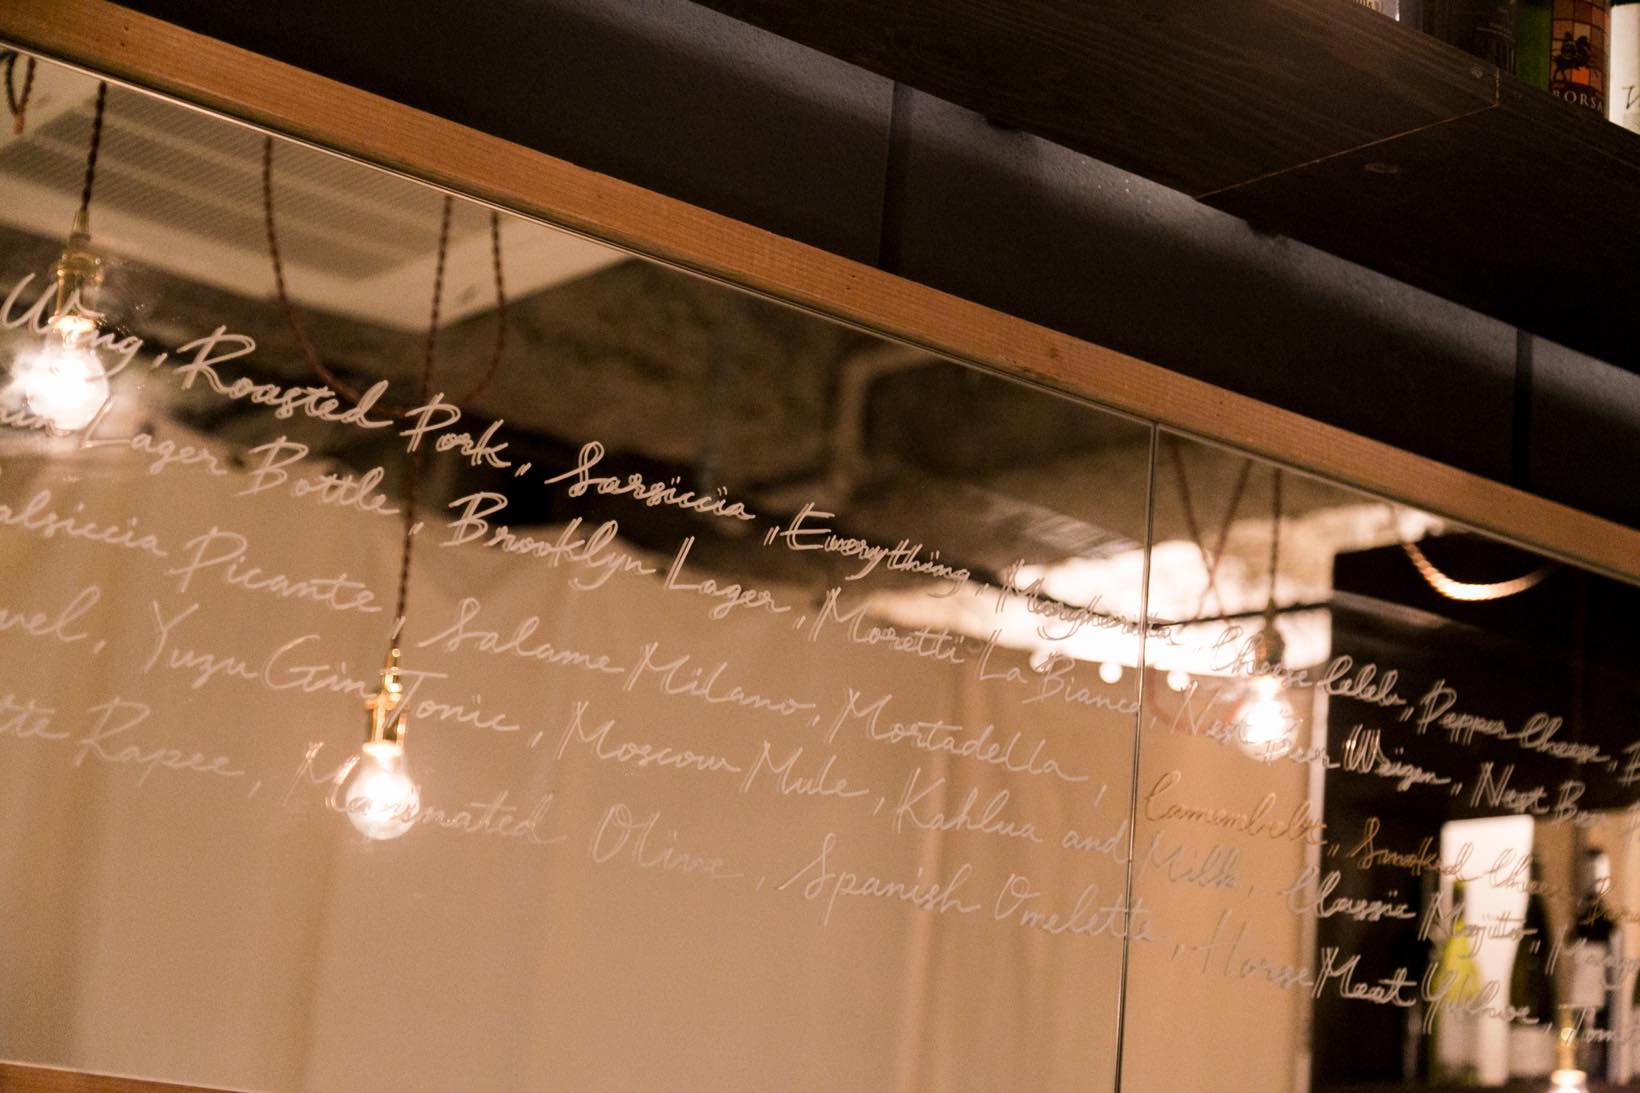 Wing, Roasted Pork, Sarsiccia, Everything, Margherita, Cheese
Lager Bottle, Brooklyn Lager, Moretti La Bianca, Nest Beer Weizen, Nest Beer
alsiccia Picante, Salame Milano, Mortadella, Smoked
Yuzu Gin Tonic, Moscow Mule, Kahlua and Milk, Classic Mojito,
tte Rapee, Olive, Spanish Omelette, Horse Meat Yukhoe, Tom
BORSA